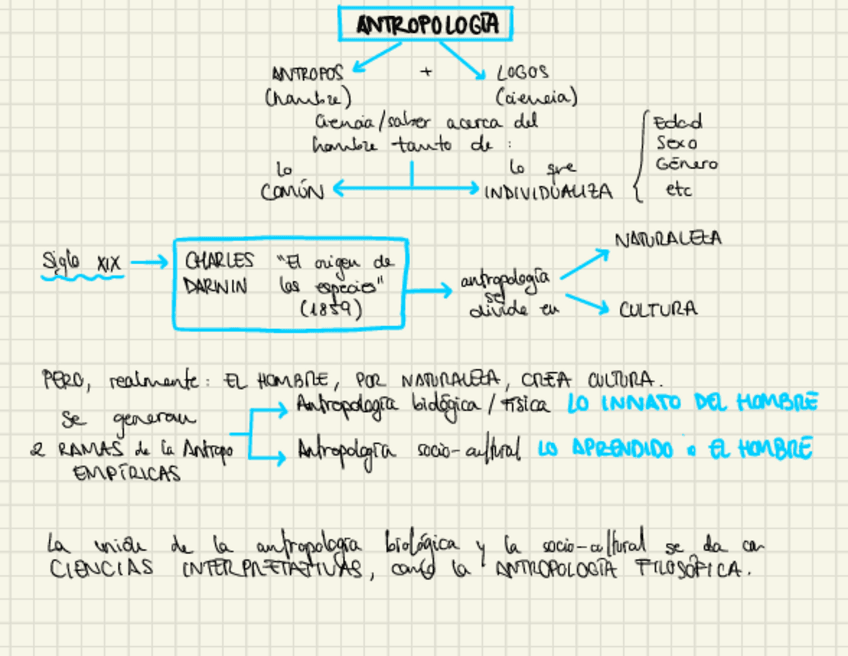 ANTROPOLOGÍA
ANTROPOS + LOGOS
(hombre) (ciencia)
Ciencia/saber acerca del
hombre tanto de :
lo COMÚN
lo que INDIVIDUALIZA
Edad
Sexo
Género
etc
Siglo XIX
CHARLES DARWIN
"El origen de
las especies"
(1859)
antropología
se
divide en
NATURALEZA
CULTURA
PERO, realmente: EL HOMBRE, POR NATURALEZA, CREA CULTURA.
Se generan
2 RAMAS de la Antropo
EMPÍRICAS
Antropología biológica / Física LO INNATO DEL HOMBRE
Antropología socio-cultural LO APRENDIDO x EL HOMBRE
La unión de la antropología biológica y la socio-cultural se da con
CIENCIAS INTERPRETATIVAS, como la ANTROPOLOGÍA FILOSÓFICA.